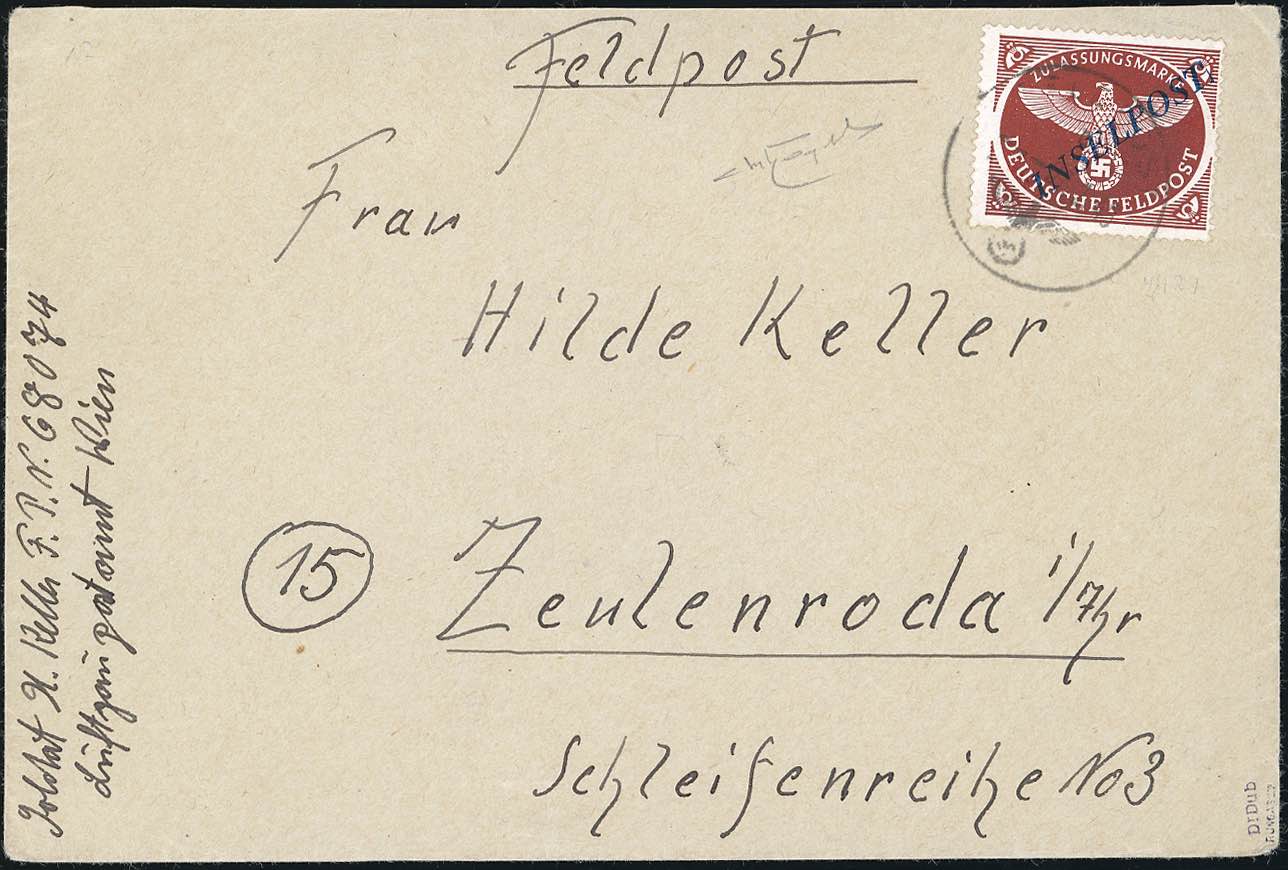 Feldpost
ZULASSUNGSMARKE
INSELPOST
DEUTSCHE FELDPOST
Frau
Hilde Keller
15 Zeulenroda i/Thr
Schleifenreihe No 3
Soldat H. Keller F.P.N. 68074
Luftgaupostamt Wien
Dr Dub